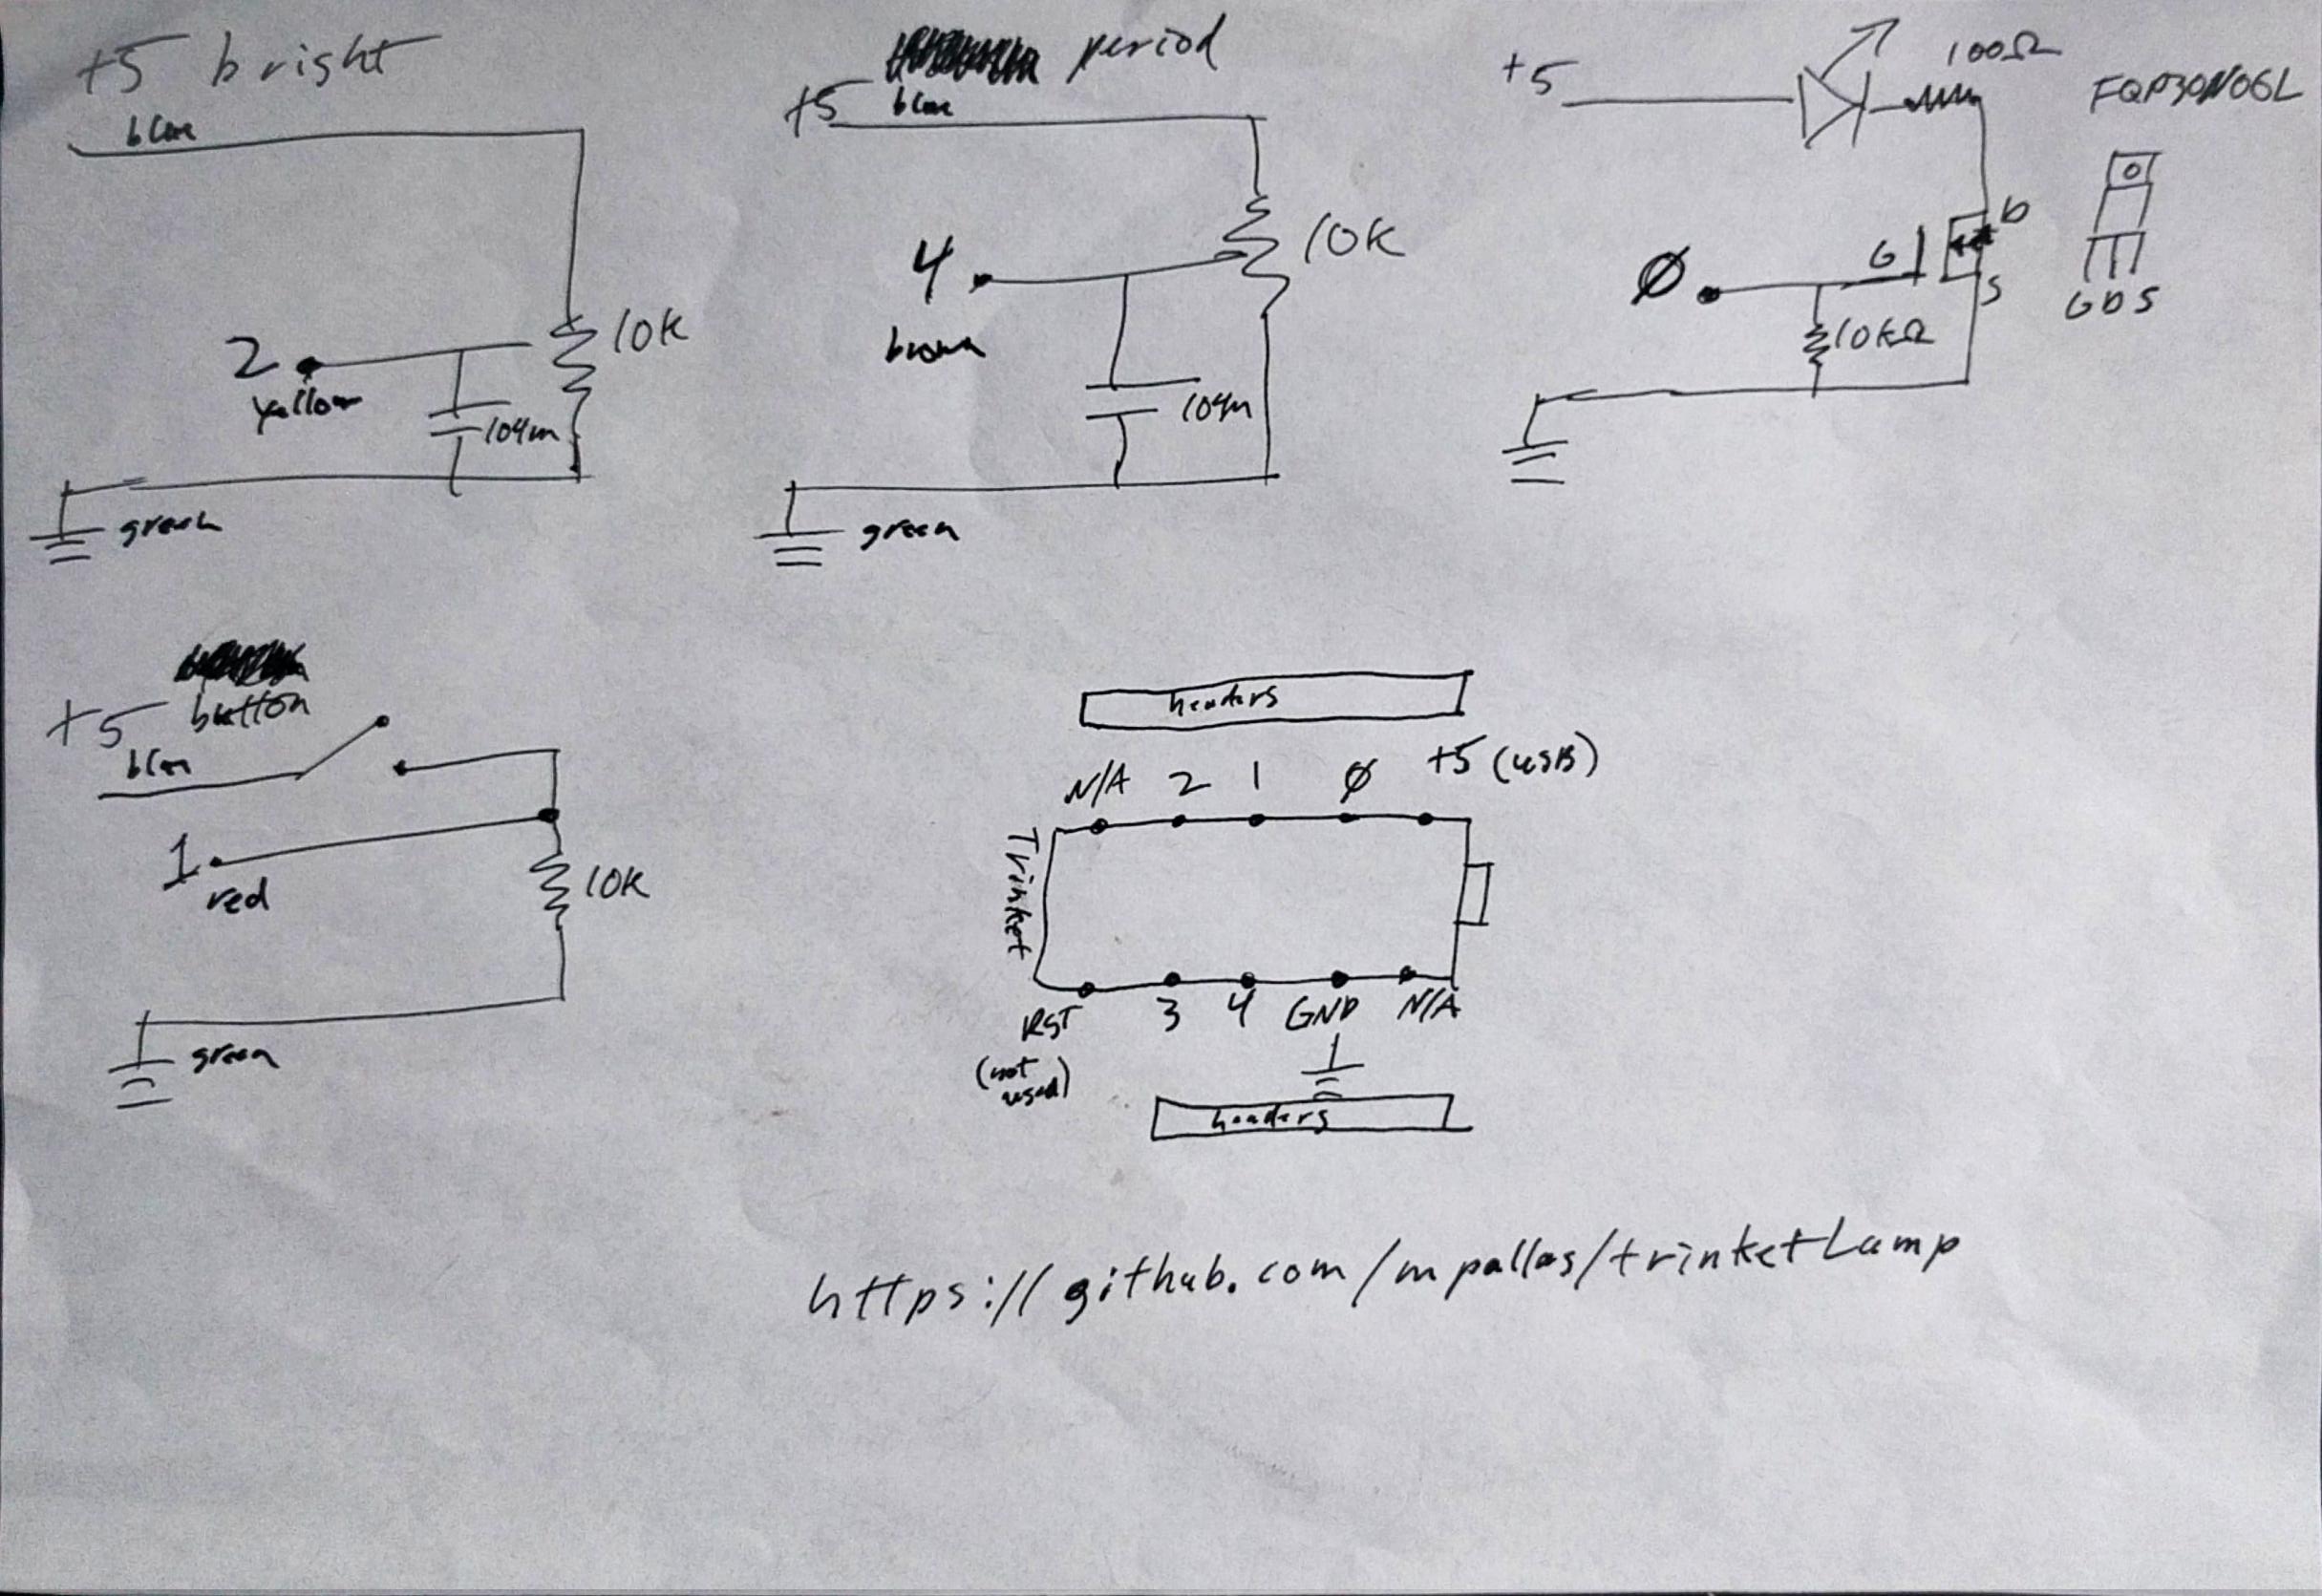 +5 bright
blue
10K
2
yellow
104m
green
period
+5 blue
10K
4
brown
104m
green
+5
100Ω
FQP30N06L
D
G
S
Ø
10KΩ
G D S
button
+5
blue
1
red
10K
green
headers
N/A 2 1 Ø +5 (USB)
Trinket
RST 3 4 GND N/A
(not
used)
headers
https://github.com/mpallas/trinketLamp